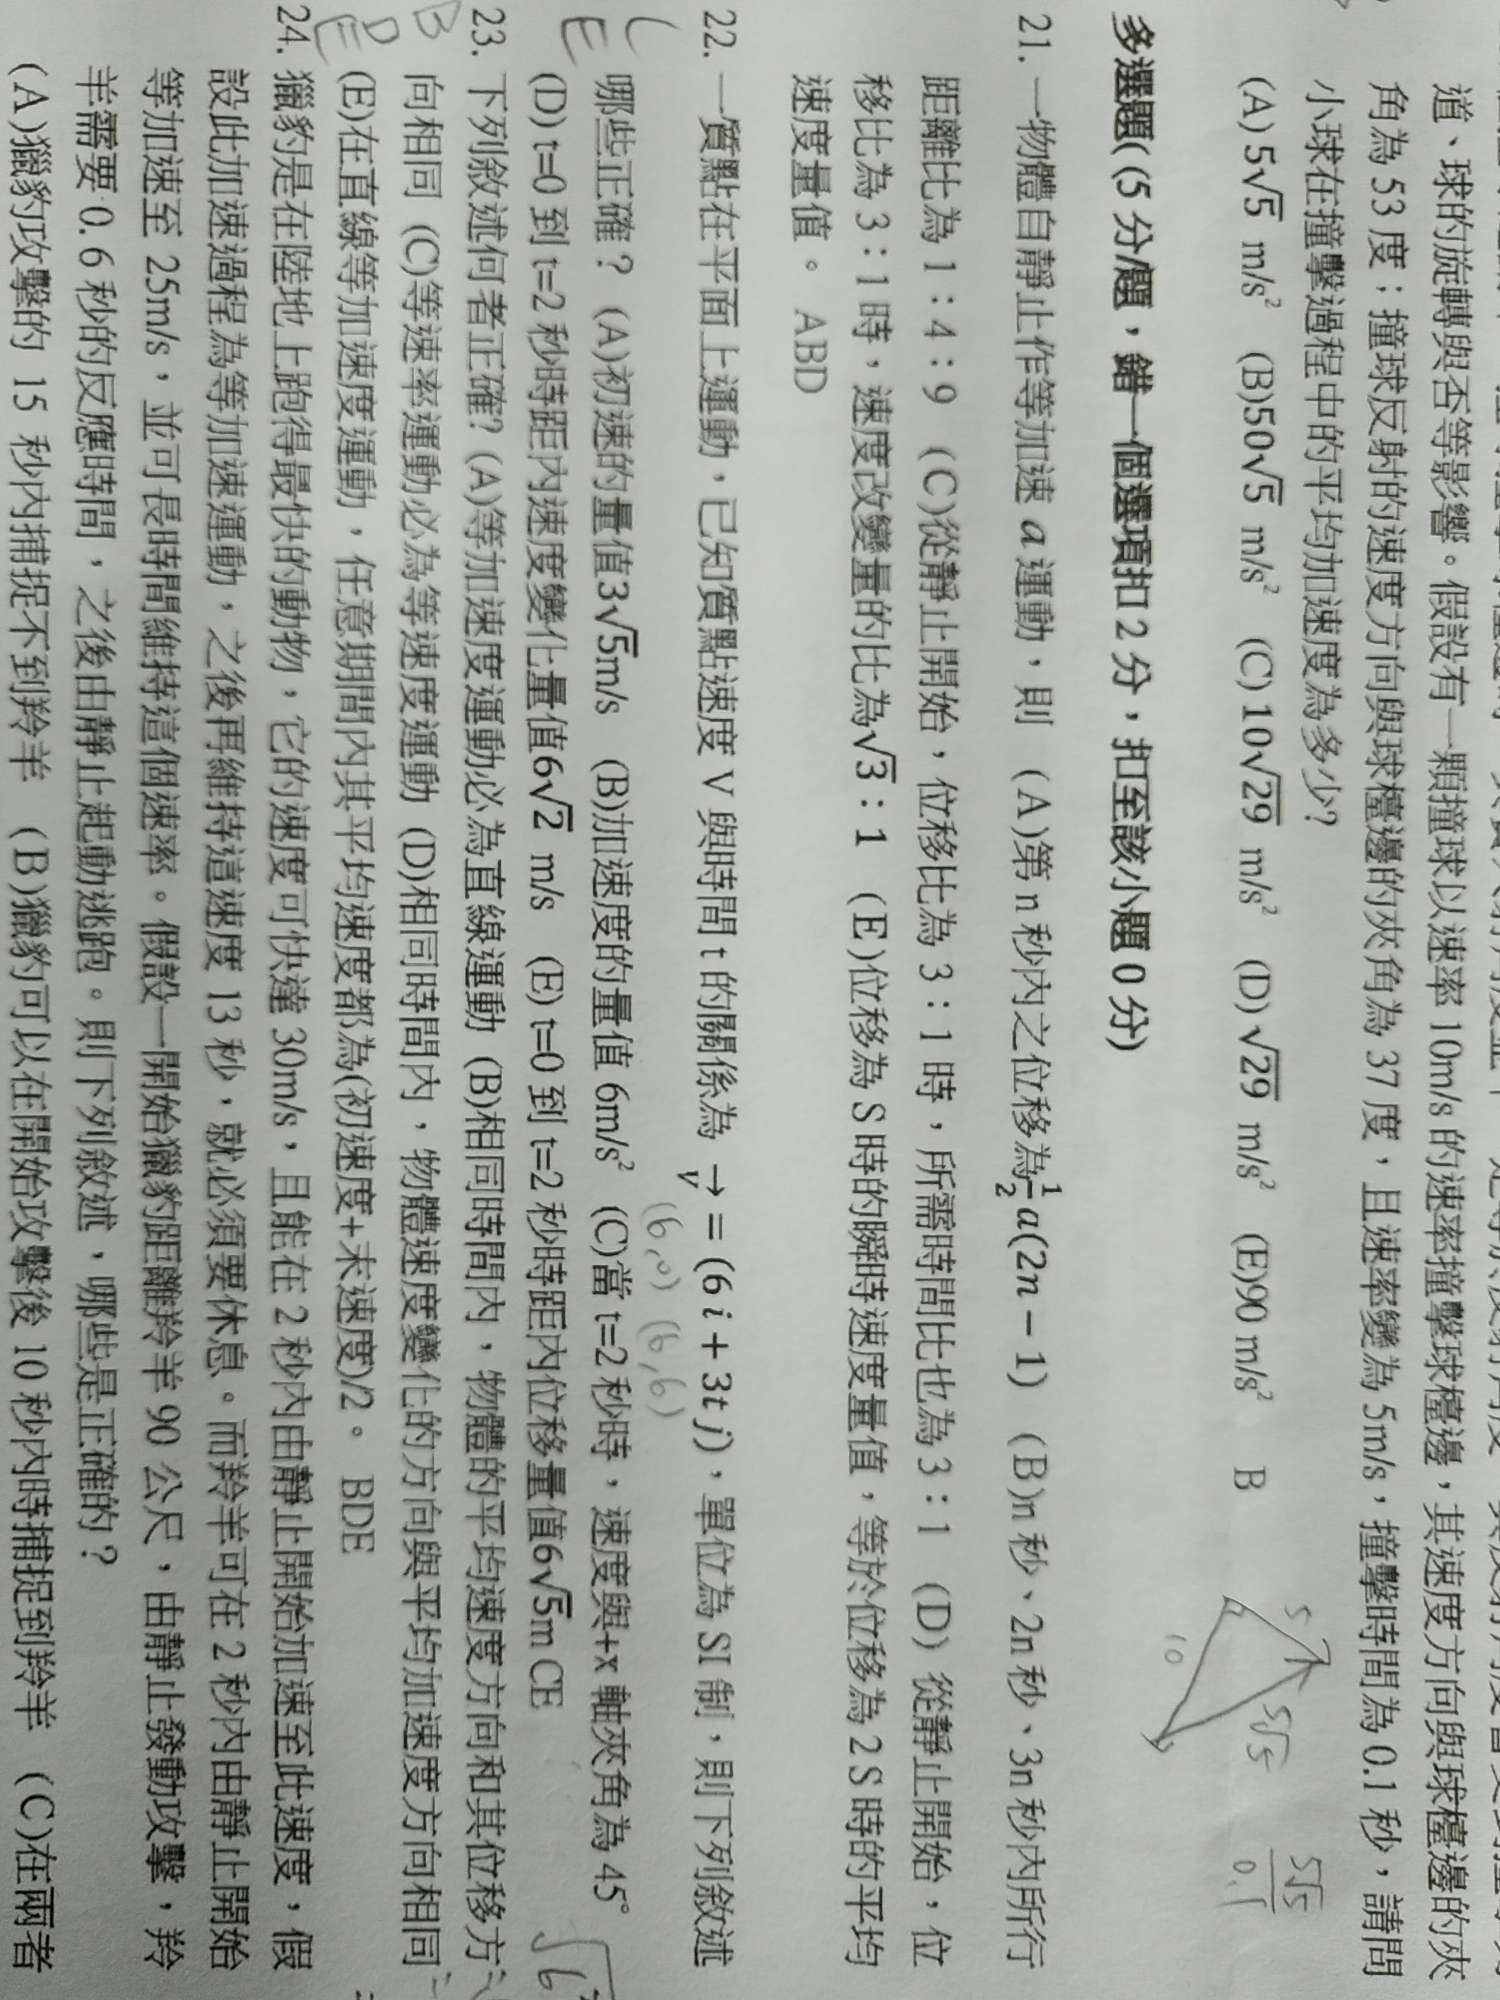 道、球的旋轉與否等影響。假設有一顆撞球以速率 10m/s 的速率撞擊球檯邊，其速度方向與球檯邊的夾
角為 53 度；撞球反射的速度方向與球檯邊的夾角為 37 度，且速率變為 5m/s，撞擊時間為 0.1 秒，請問
小球在撞擊過程中的平均加速度為多少?
(A) 5√5 m/s² (B)50√5 m/s² (C) 10√29 m/s² (D) √29 m/s² (E)90 m/s² B
5
5√5
10
5√5
0.1
多選題((5 分/題，錯一個選項扣 2 分，扣至該小題 0 分)
21. 一物體自靜止作等加速 a 運動，則 (A)第 n 秒內之位移為½a(2n − 1) (B)n 秒、2n 秒、3n 秒內所行
距離比為 1：4：9 (C)從靜止開始，位移比為 3：1 時，所需時間比也為 3：1 (D) 從靜止開始，位
移比為 3：1 時，速度改變量的比為√3：1 (E)位移為 S 時的瞬時速度量值，等於位移為 2 S 時的平均
速度量值。 ABD
22. 一質點在平面上運動，已知質點速度 V 與時間 t 的關係為 v→ = (6 i + 3t j)，單位為 SI 制，則下列敘述
(6,0) (6,6)
哪些正確？ (A)初速的量值3√5m/s (B)加速度的量值 6m/s² (C)當 t=2 秒時，速度與+x 軸夾角為 45°
(D) t=0 到 t=2 秒時距內速度變化量值6√2 m/s (E) t=0 到 t=2 秒時距內位移量值6√5m CE
C
E
23. 下列敘述何者正確? (A)等加速度運動必為直線運動 (B)相同時間內，物體的平均速度方向和其位移方
向相同 (C)等速率運動必為等速度運動 (D)相同時間內，物體速度變化的方向與平均加速度方向相同
(E)在直線等加速度運動，任意期間內其平均速度都為(初速度+末速度)/2。 BDE
B
D
E
24. 獵豹是在陸地上跑得最快的動物，它的速度可快達 30m/s，且能在 2 秒內由靜止開始加速至此速度，假
設此加速過程為等加速運動，之後再維持這速度 13 秒，就必須要休息。而羚羊可在 2 秒內由靜止開始
等加速至 25m/s，並可長時間維持這個速率。假設一開始獵豹距離羚羊 90 公尺，由靜止發動攻擊，羚
羊需要 0.6 秒的反應時間，之後由靜止起動逃跑。則下列敘述，哪些是正確的？
(A)獵豹攻擊的 15 秒內捕捉不到羚羊 (B)獵豹可以在開始攻擊後 10 秒內時捕捉到羚羊 (C)在兩者